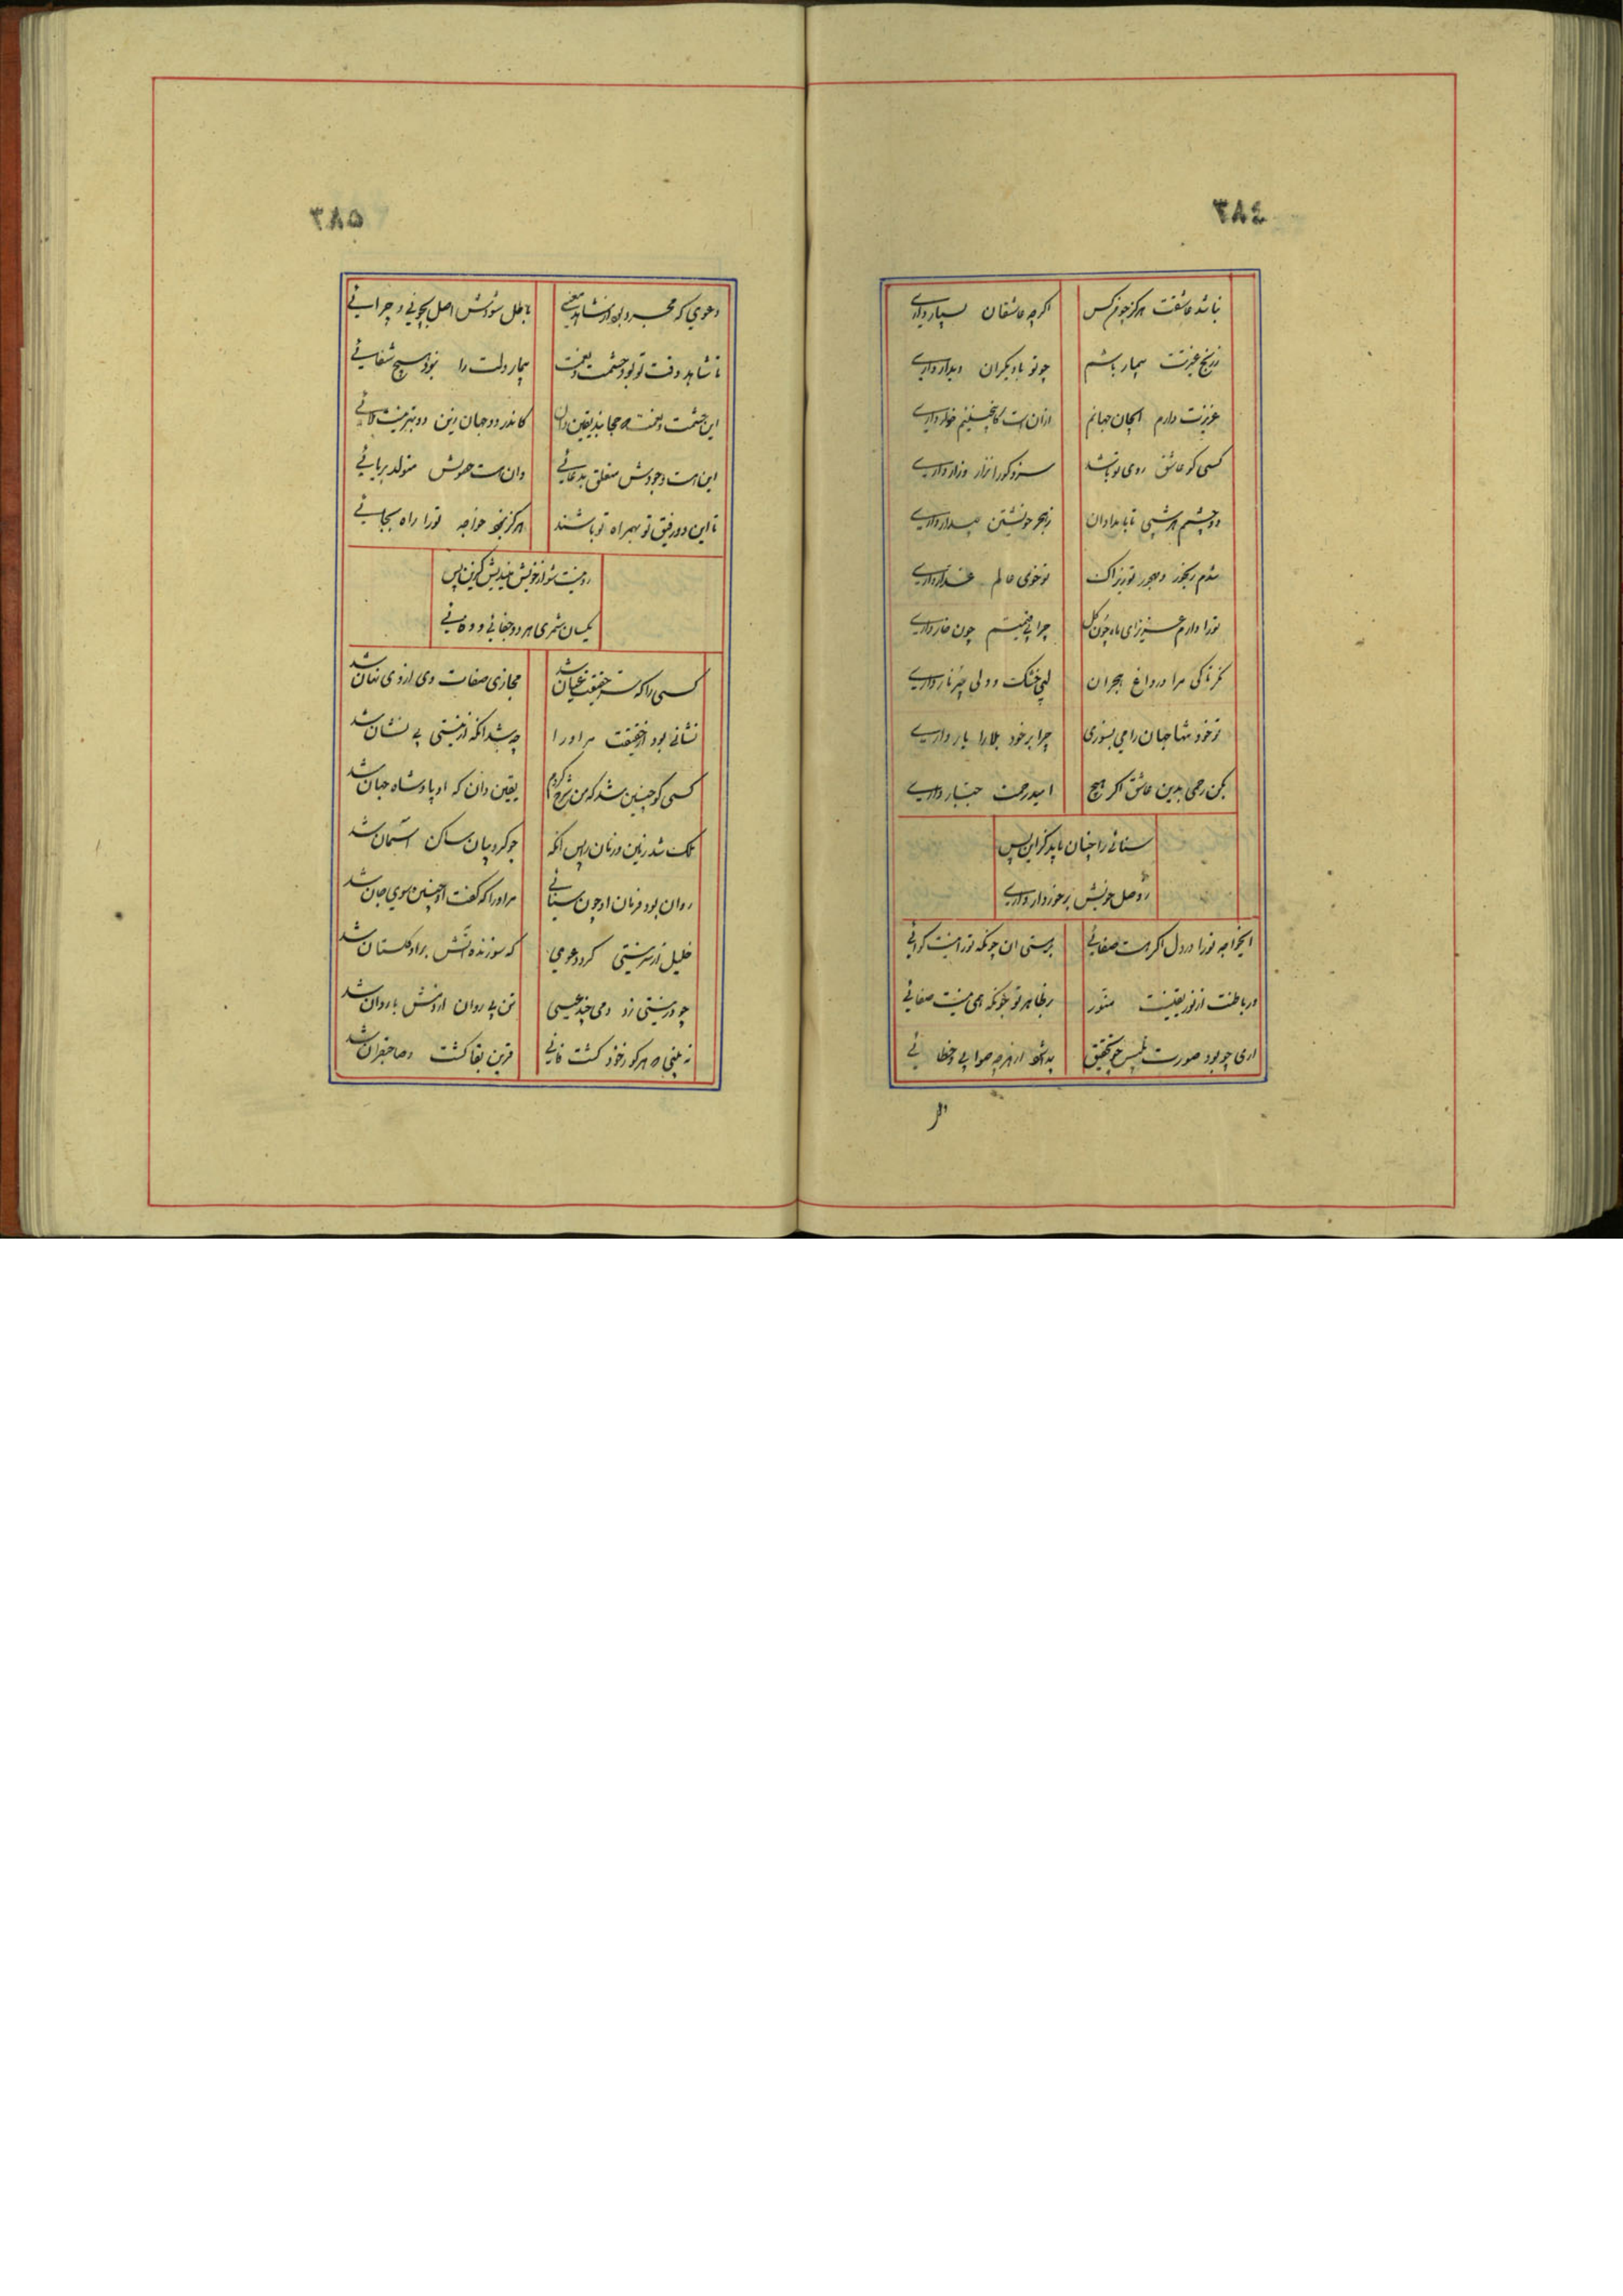 ٣٨٤
نباشد عاشقت هرکز چو من کس
اکرچه عاشقان بسیار داری
ز رنج غیرتت بیمار باشم
چو تو با دیکران دیدار داری
عزیزت دارم ایجان جهانم
ازان است کاینچنینم خوار داری
کسی کو عاشق روی تو باشد
سزد کورا نزار و زار داری
دو چشم هر شبی تا بامدادان
ز هجر خویشتن بیدار داری
شدم رنجور و مهجور تو زیراک
تو خوی عالم غدار داری
تورا دارم عزیز ای ماه چون کل
چرا بی قیمتم چون خار داری
مرا در داغ هجران
لبی خشک و دلی پر نار داری
تو خود تنها جهان را می بسوزی
چرا بر خود بلارا یار داری
بکن رحمی بدین عاشق اکر هیچ
امید رحمت جبار داری
سنائی را چنان باید کزاین پس
ز وصل خویش برخوردار داری
ایخواجه تورا در دل اکر هست صفائی
بر هستی ان چونکه تورا نیست کوائی
ور باطنت از نور یقینت منور
بر ظاهر تو چونکه همی نیست ضیائی
اری چو بود صورت تلبیس چو تحقیق
پیدا شود از هر چه صوابی و خطائی
٣٨٥
دعوی که مجرد بود از شاهد معنی
باطل شودش اصل بچونی و چرائی
تا شاهد وقت تو بود حشمت و نعمت
بیمار دلت را نبود هیچ شفائی
این حشمت و نعمت حجابند یقین دان
کاندر دو جهان زین دو بتر نیست بلائی
این هست وجودش متعلق بدغائی
وان هست حصولش متولد بریائی
تا این دو رفیق تو بهمراه تو باشند
هرکز نبود خواجه تورا راه بجائی
رو نیست شو از خویش میندیش کزین پس
یکسان شمری هر دو جفائی و وفائی
کسی را که سر حقیقت عیان شد
مجازی صفات وی از وی نهان شد
نشانی بود از حقیقت مر اورا
چه شد انکه از نیستی بی نشان شد
کسی کو چنین شد که من شرح کردم
یقین دان که او پادشاه جهان شد
ملک شد زمین و زمان را پس انکه
چو کروبیان ساکن اسمان شد
روان بود فرمان او چون سنائی
مر اورا که کفت او چنین سوی جان شد
خلیل از سر نیستی کرد دعوی
که سوزنده اتش بر او کلستان شد
چو در نیستی زد دمی چند عیسی
تن بی روان از دمش با روان شد
نه بینی ه هرکو ز خود کشت فانی
قرین بقا کشت و صاحبقران شد